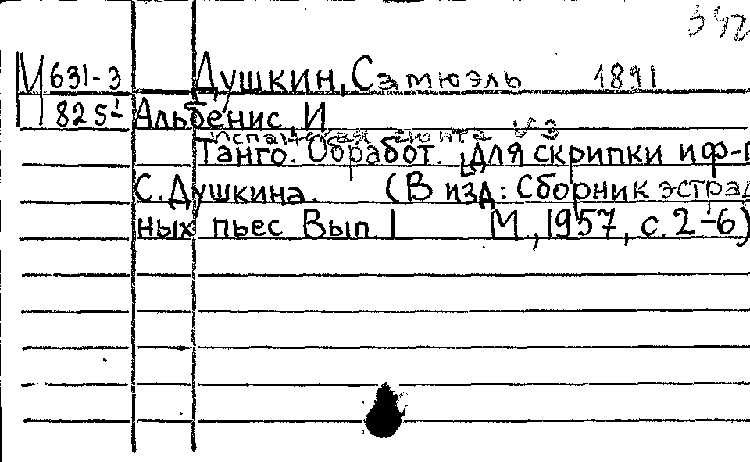 342
М 631-3 Душкин, Самюэль 1891
П 825- Альбенис, И
Испанская сюита из
Танго. Обработ. Для скрипки и ф-п
С. Душкина. (В изд: Сборник эстрад
ных пьес Вып 1 М, 1957, с. 2-6)